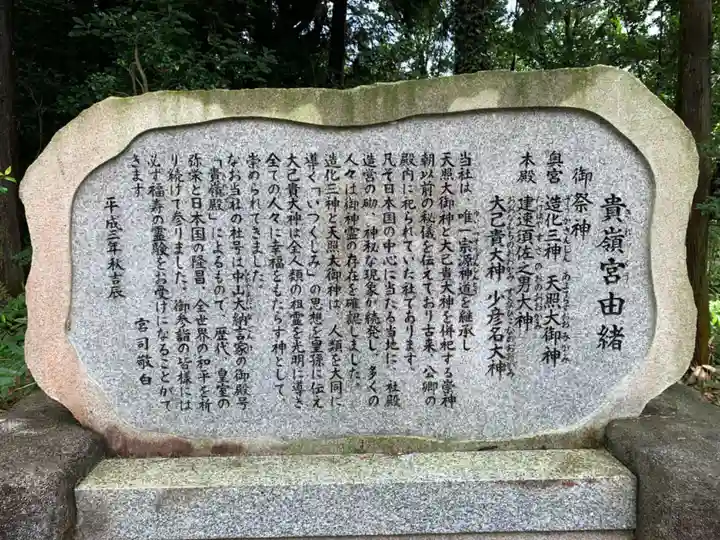 貴嶺宮由緒
御祭神
奥宮 造化三神 天照大御神
本殿 建速須佐之男大神
大己貴大神 少彦名大神
当社は、唯一宗源神道を継承し
天照大御神と大己貴大神を併祀する崇神
朝以前の秘儀を伝えており古来、公卿の
殿内に祀られていた社であります。
凡そ日本国の中心に当たる当地に、社殿
造営の砌、神秘な現象が続発し、多くの
人々は御神霊の存在を確認しました。
造化三神と天照大御神は、人類を大同に
導く「いつくしみ」の思想を皇孫に伝え
大己貴大神は全人類の祖霊を光明に導き
全ての人々に幸福をもたらす神として、
崇められてきました。
なお当社の社号は中山大納言家の御殿号
「貴嶺殿」によるもので、歴代、皇室の
弥栄と日本国の隆昌、全世界の和平を祈
り続けて参りました。御参詣の皆様には
必ず福寿の霊験をお受けになることがで
きます
平成三年秋吉辰
宮司敬白